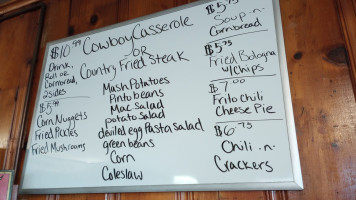 $10.99 Cowboy Casserole
OR
Country Fried Steak
Drink,
Roll or
Cornbread,
2 Sides
$5.99
Corn Nuggets
Fried Pickles
Fried Mushrooms
Mash Potatoes
Pinto beans
Mac Salad
potato Salad
deviled egg Pasta Salad
green beans
Corn
Coleslaw
$5.75
Soup -n-
Cornbread
$5.75
Fried Bologna
w/ Chips
$7.00
Frito Chili
Cheese Pie
$6.75
Chili -n-
Crackers